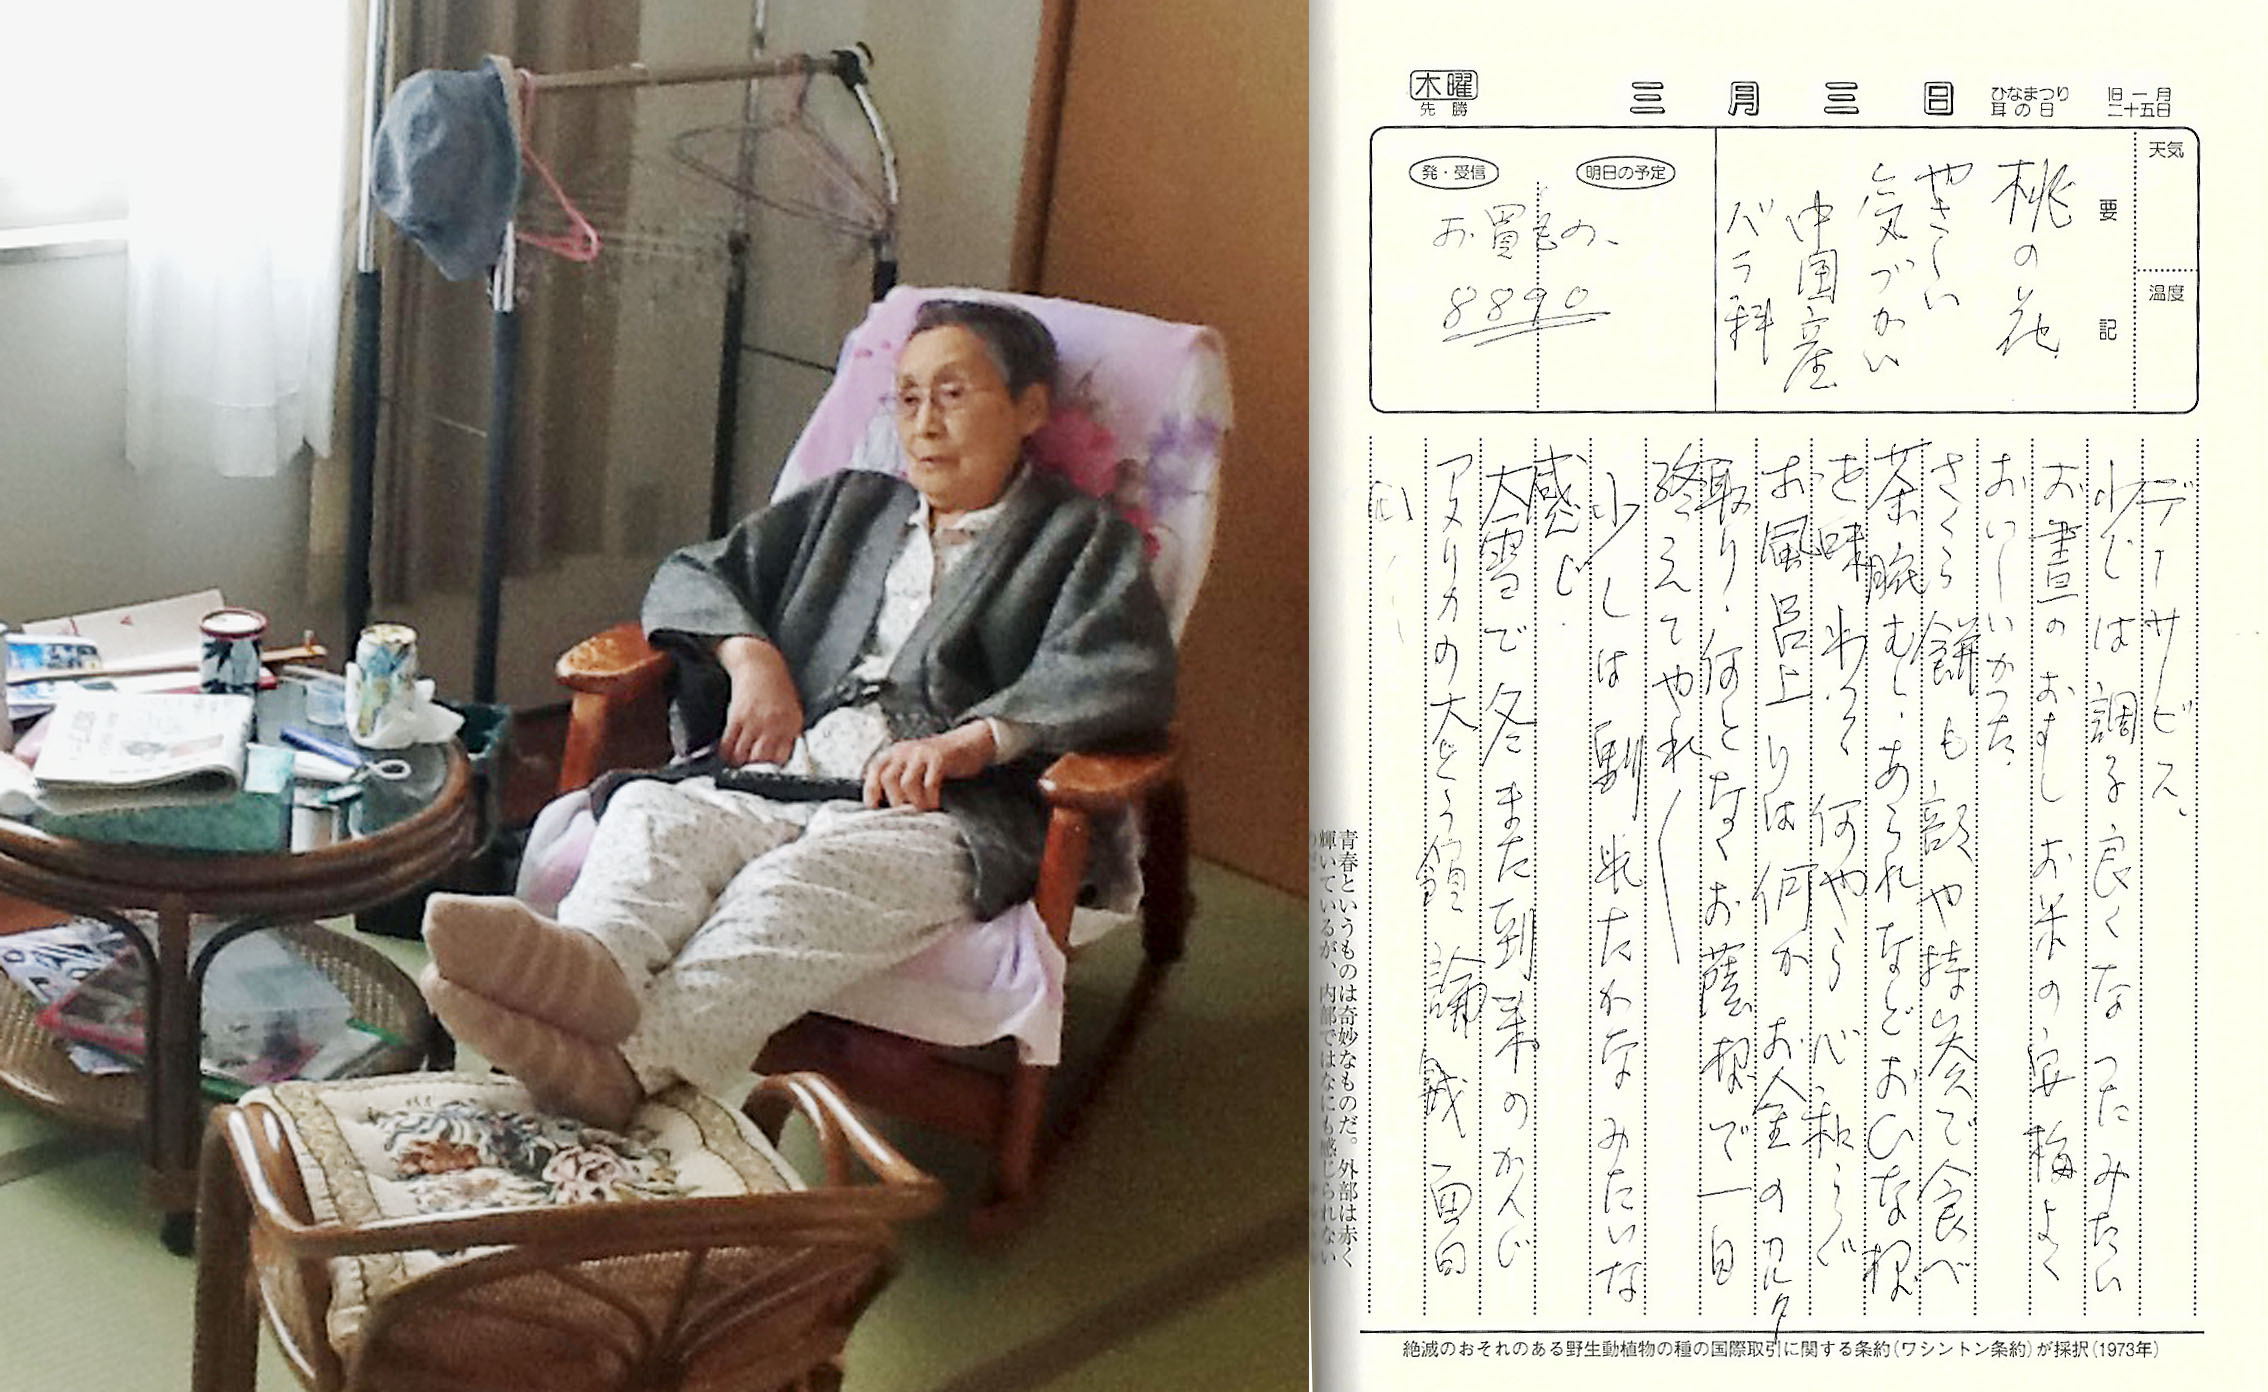 木曜
先勝
三月三日
ひなまつり
耳の日
旧一月
二十五日
天気
温度
要記
桃の花
やさしい
気づかい
中国産
バラ科
明日の予定
発・受信
お買もの、
8890
デーサービス、
少しは調子良くなったみたい
お昼のおすしお米の安梅よく
おいしいかった
さくら餅も
茶腕むし、あられなどおひな様
を味わって何やら心和らぐ
お風呂上りは何か
取り、何となくお蔭様で一日
終えてやれ〱
少しは馴れたかなみたいな
感じ
大雪で冬また到来のかんじ
アメリカの大とう領論戦面白
青春というものは奇妙なものだ。外部は赤く
輝いているが、内部ではなにも感じられない
絶滅のおそれのある野生動植物の種の国際取引に関する条約(ワシントン条約)が採択(1973年)